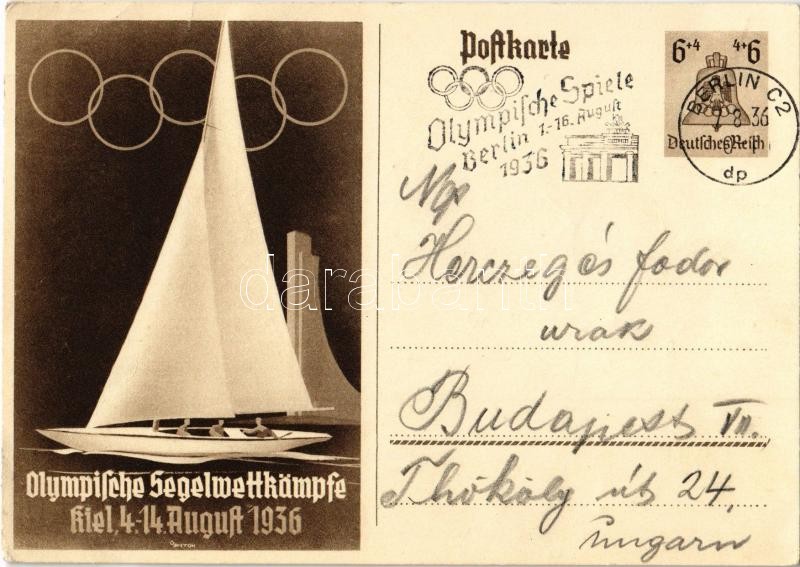 Postkarte
6+4 4+6
Deutsches Reich
BERLIN C2
8.36
dp
Olympische Spiele
Berlin 1.-16. August
1936
Herczeg és Fodor
urak
Budapest VII.
Thököly út 24.
Ungarn
Olympische Segelwettkämpfe
Kiel, 4.-14. August 1936
darabanth